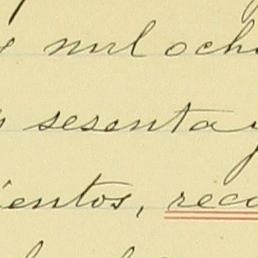 mil ocho
sesenta y
ientos, reco